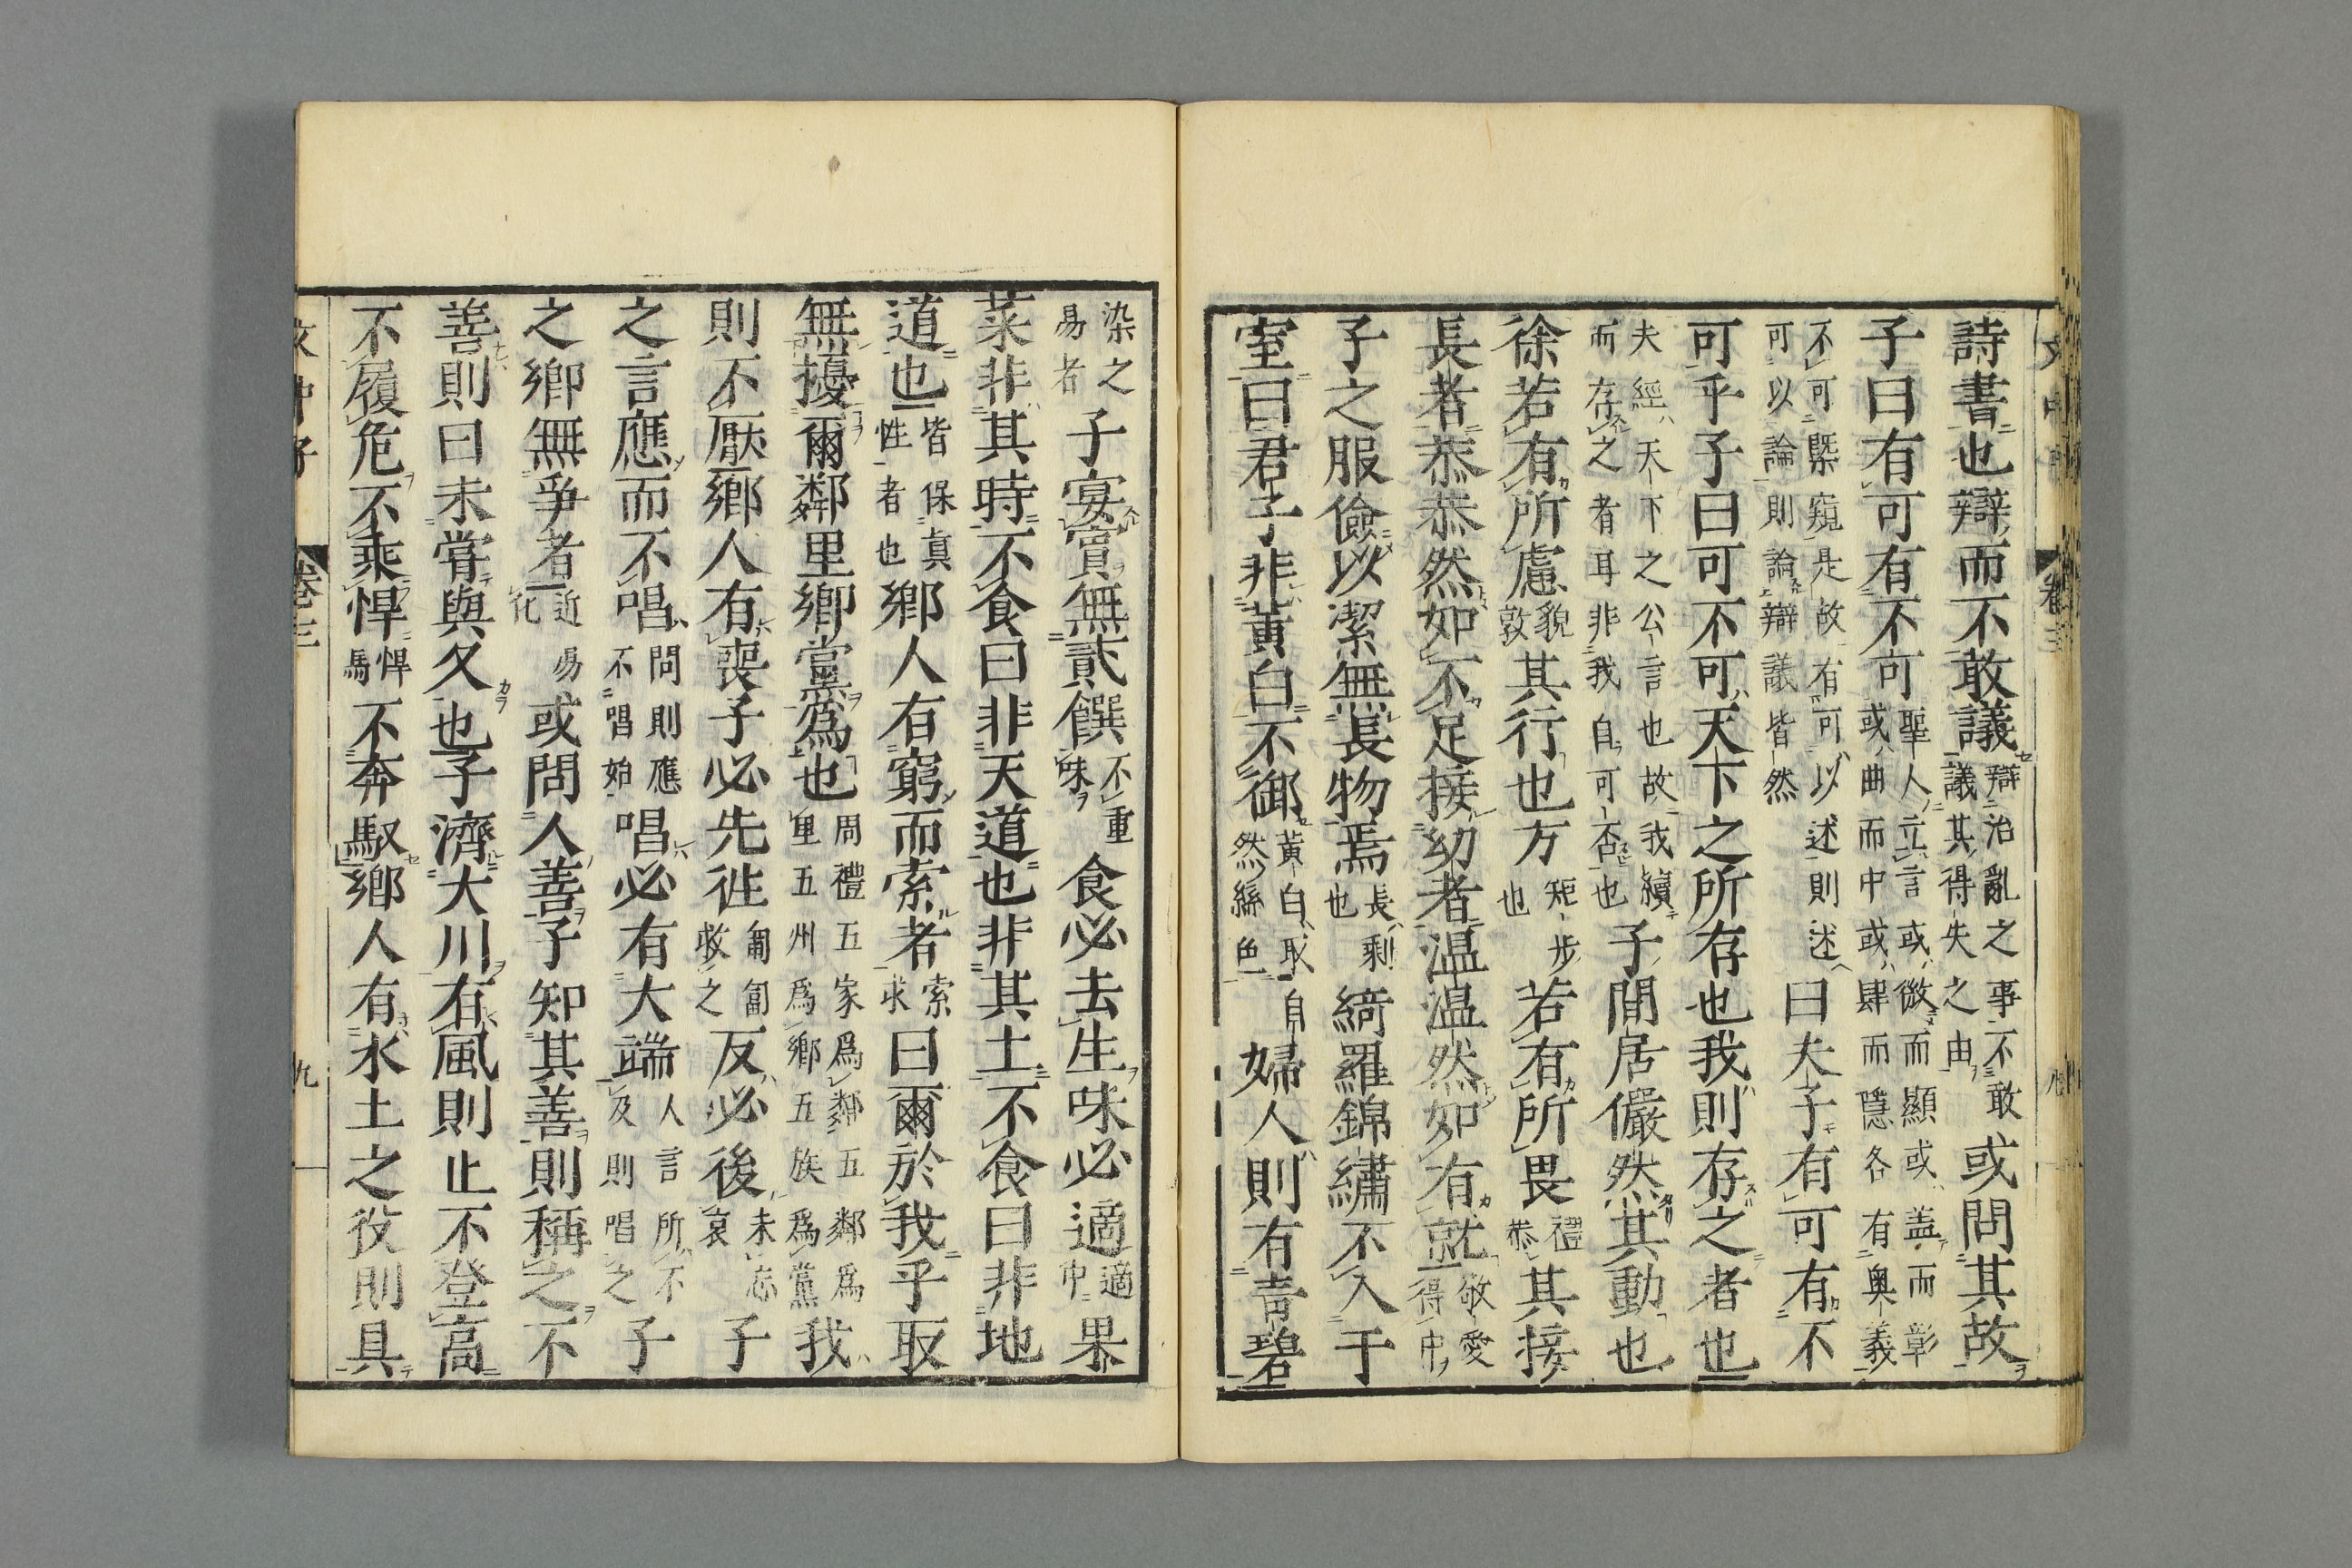 詩書也辯而不敢議辯治亂之事不敢議其得失之由或問其故
子曰有可有不可聖人立言或微而顯或盖而彰或曲而中或肆而隱各有奥義
不可槩窺是故有可以述則述可以論則論辯議皆然曰夫子有可有不
可乎子曰可不可天下之所存也我則存之者也
夫經天下之公言也故我續而存之者耳非我自可否也子閒居儼然其動也
徐若有所慮貌敦其行也方矩步也若有所畏禮恭其接
長者恭恭然如不足接幼者温温然如有就敬愛得中
子之服儉以潔無長物焉長剩也綺羅錦繡不入于
室曰君子非黃白不御黃白取自然絲色婦人則有青碧
染之易者子宴賔無貳饌不重味食必去生味必適適中果
菜非其時不食曰非天道也非其土不食曰非地
道也皆保真性者也鄉人有窮而索者索求曰爾於我乎取
無擾爾鄰里鄉黨爲也周禮五家爲鄰五鄰爲里五州爲鄉五族爲黨我
則不厭鄉人有喪子必先徃匍匐救之反必後未忘哀子
之言應而不唱問則應不唱始唱必有大端人言所不及則唱之子
之鄉無爭者近易化或問人善子知其善則稱之不
善則曰未甞與久也子濟大川有風則止不登高
不履危不乘悍悍馬不奔馭鄉人有水土之役則具
卷三
九